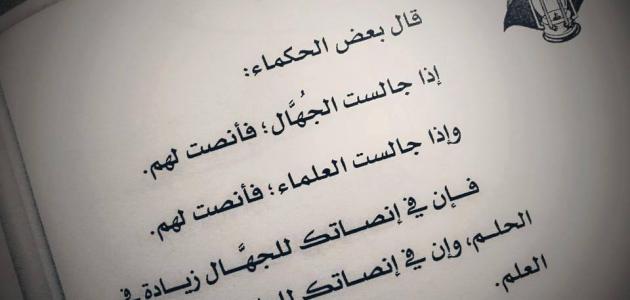 قال بعض الحكماء:
إذا جالست الجُهَّال؛ فأنصت لهم.
وإذا جالست العلماء؛ فأنصت لهم.
فإن في إنصاتك للجهَّال زيادة في
الحلم، وإن في إنصاتك
العلم.